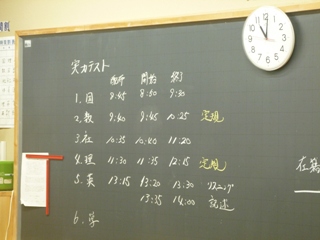 実力テスト
着席 開始 終了
1. 国 8:45 8:50 9:30
2. 数 9:40 9:45 10:25 定規
3. 社 10:35 10:40 11:20
4. 理 11:30 11:35 12:15 定規
5. 英 13:15 13:20 13:30 リスニング
13:35 14:00 記述
6. 学
在籍